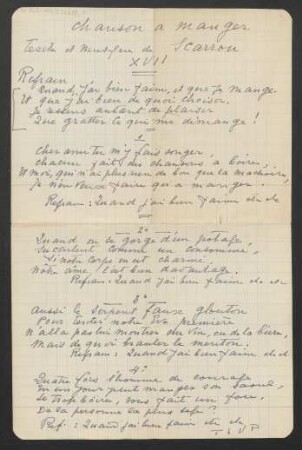 Chanson a manger
Texte et Musique de Scarron
XVII
Refrain
Quand j'ai bien faim, et que je mange
Et que j'ai bien de quoi choisir
Je ressens autant de plaisir
Que gratter ce qui me démange!
1
Cher ami tu m'y fais songer
Chacun fait des chansons à boire,
Et moi, qui n'ai plus rien de bon que la machoire,
Je n'en veux faire qu'a manger.
Refrain: Quand j'ai bien faim etc etc
2°
Quand on se gorge d'un potage,
Succulent comme un consommé,
Si notre corps en est charmé,
Notre âme l'est bien davantage.
Refrain: Quand j'ai bien faim etc etc
3°
Aussi le serpent faux glouton
Pour tenter notre premier
N'alla pas lui montrer du vin, ou de la bière,
Mais de quoi branler le menton.
Refrain: Quand j'ai bien faim etc etc
4°
Quatre fois l'homme de courage
En un jour peut manger son saoul,
Le trop boire, vous fait un fou.
De la personne la plus sage?
Ref: Quand j'ai bien faim etc etc
T S V P